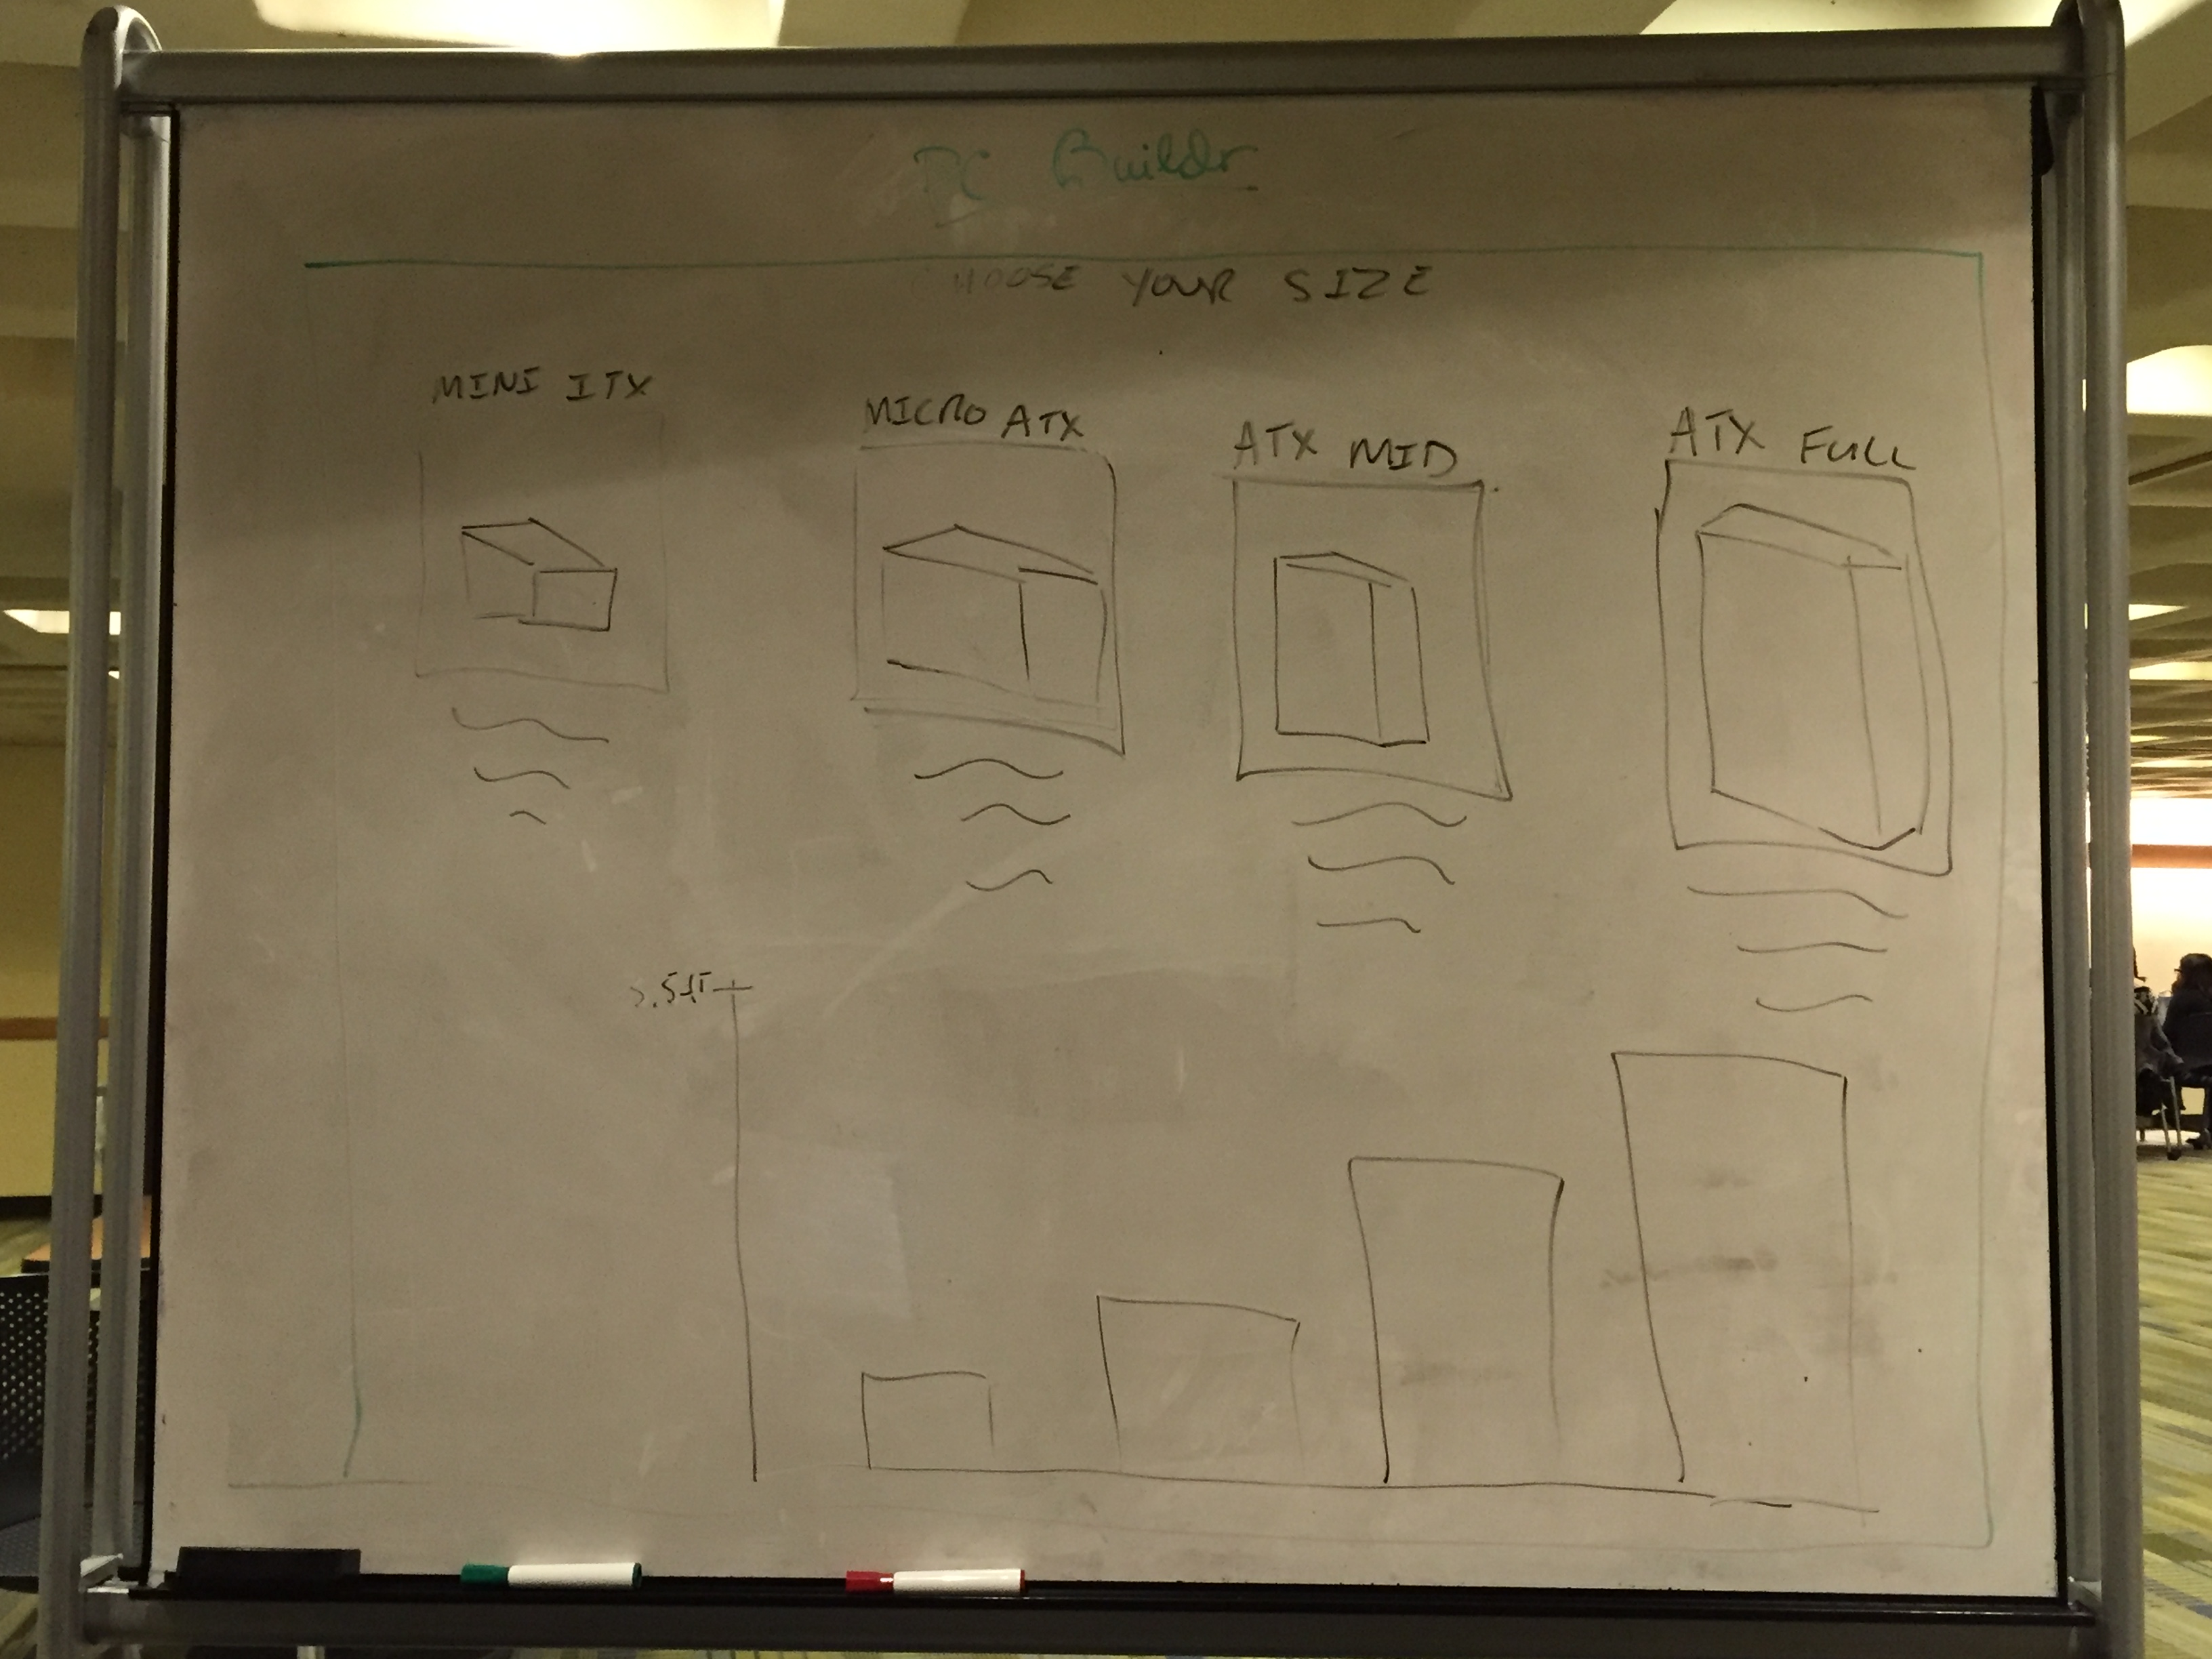 PC Builder
CHOOSE YOUR SIZE
MINI ITX
MICRO ATX
ATX MID
ATX FULL